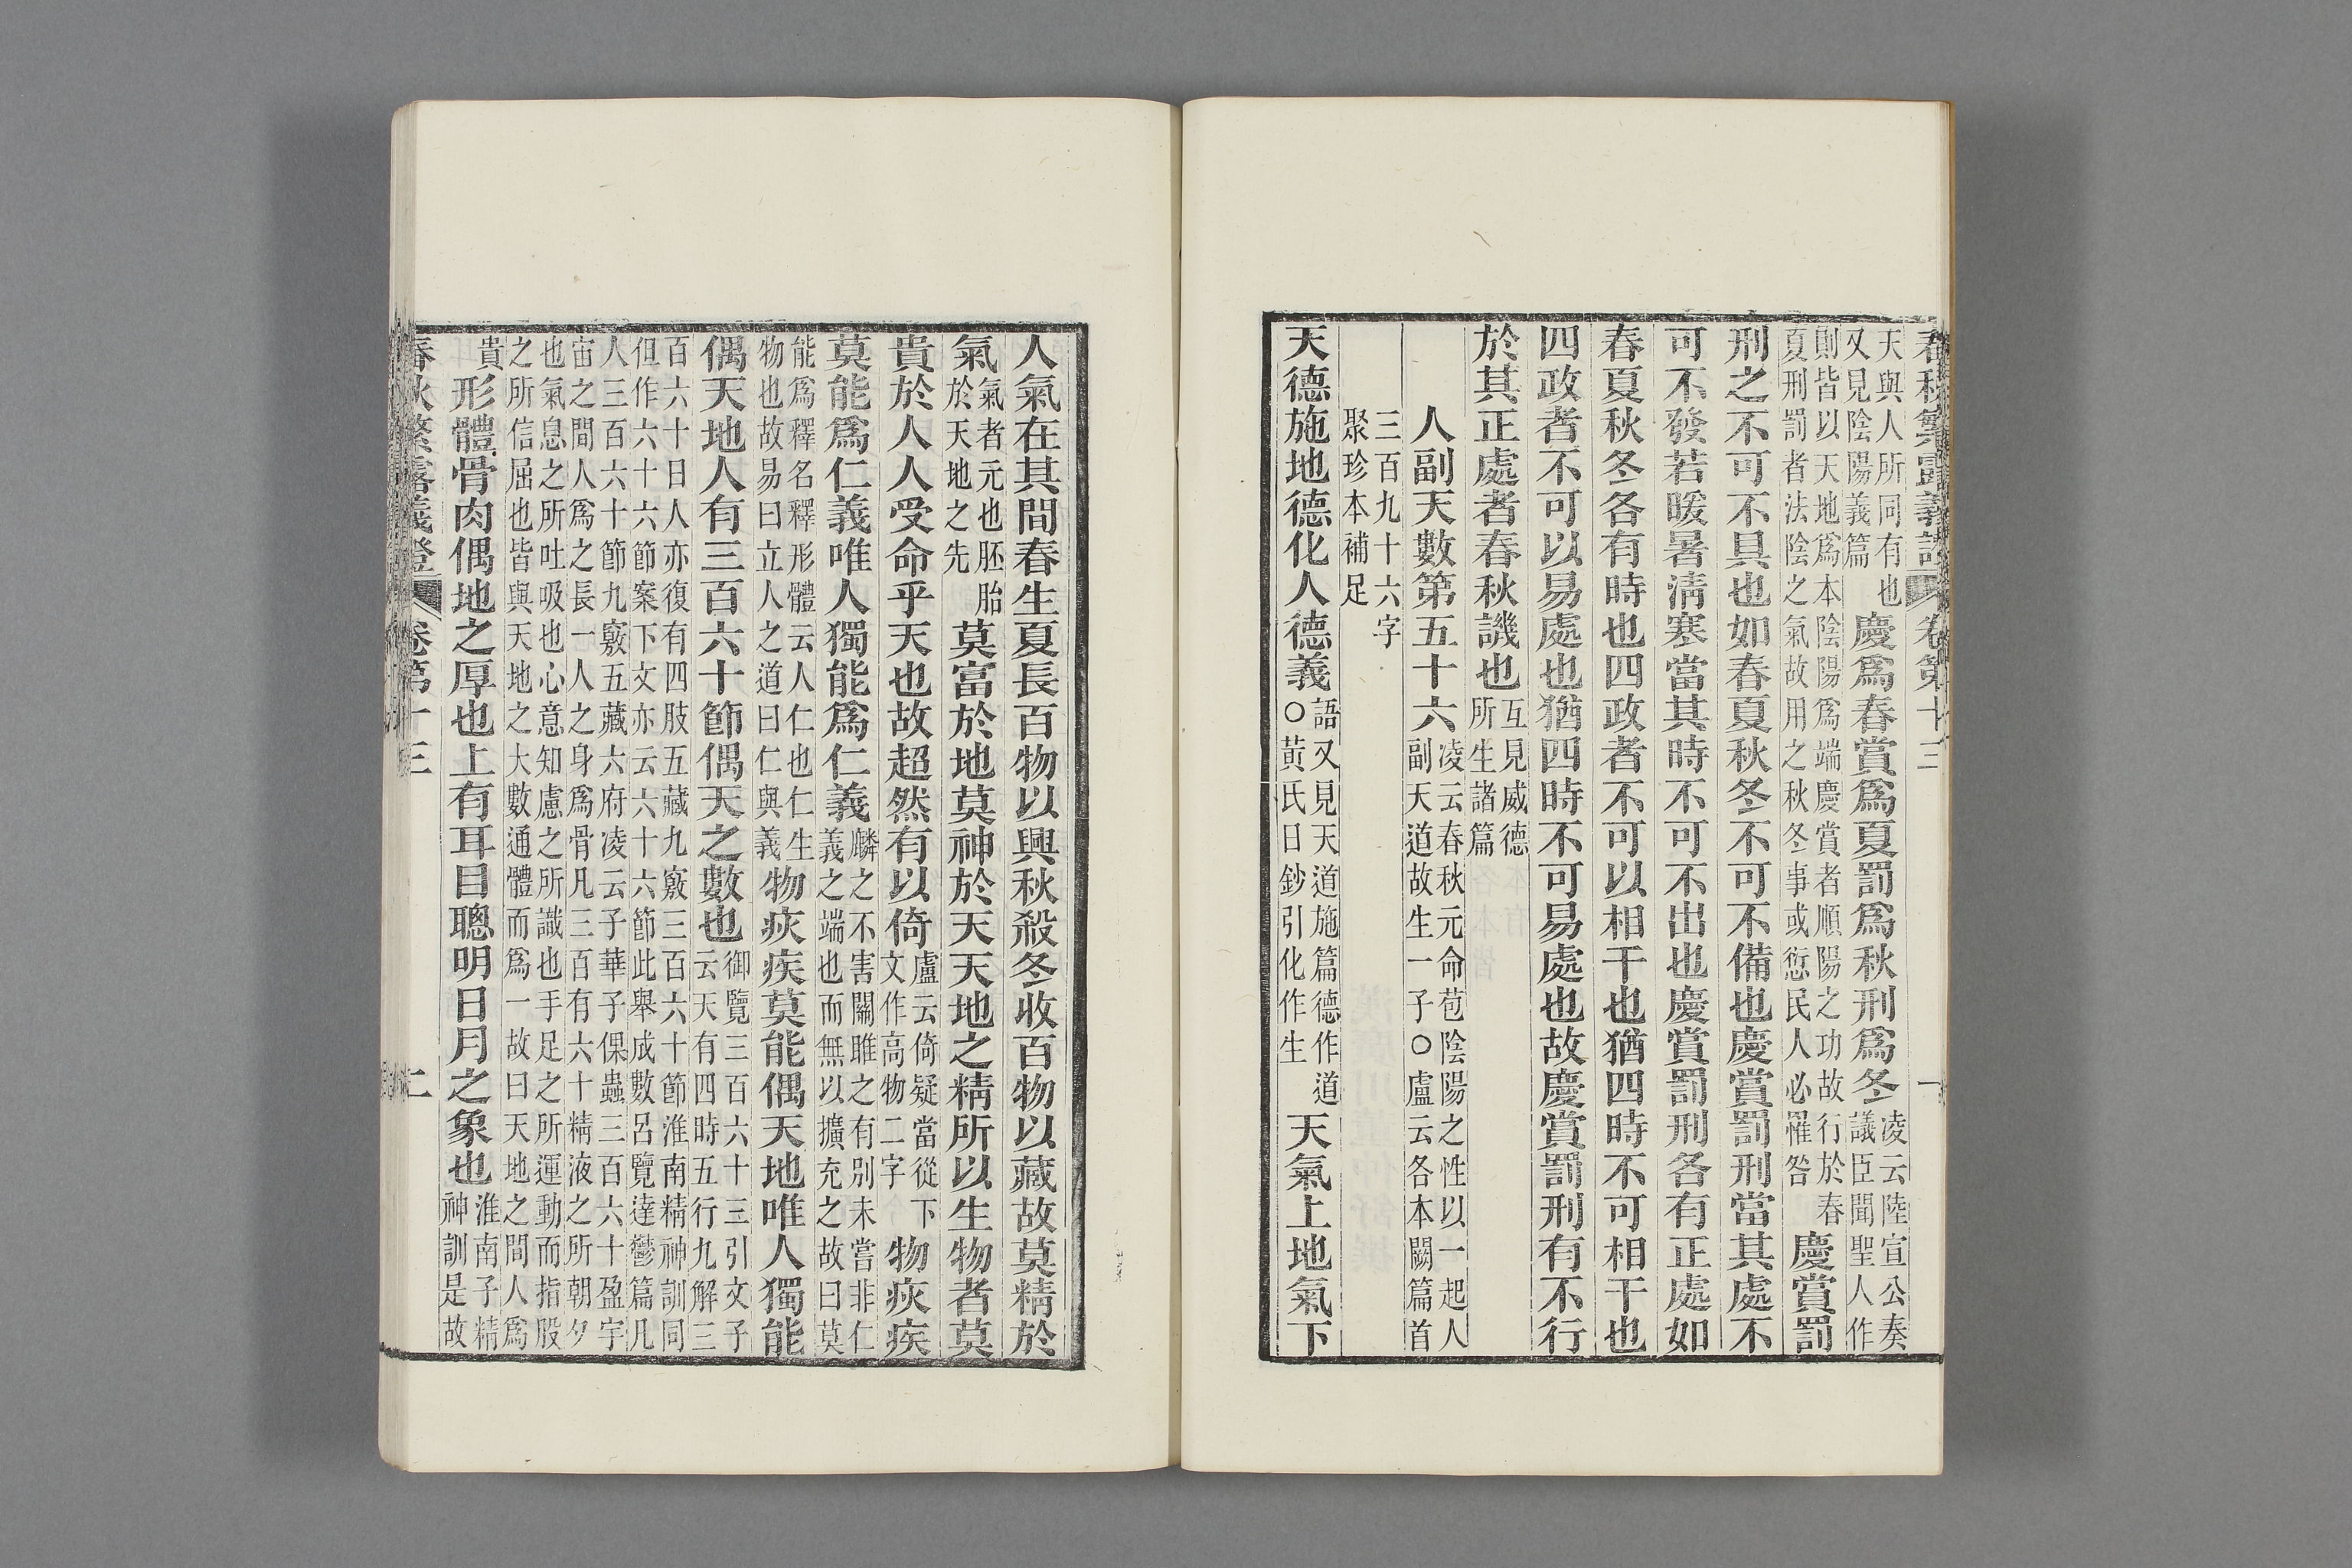 春秋繁露義證 卷第十三 一
天與人所同有也
又見陰陽義篇
慶爲春賞爲夏罰爲秋刑爲冬
凌云陸宣公奏
議臣聞聖人作
則皆以天地爲本陰陽爲端慶賞者順陽之功故行於春
夏刑罰者法陰之氣故用之秋冬事或愆民人必罹咎
慶賞罰
刑之不可不具也如春夏秋冬不可不備也慶賞罰刑當其處不
可不發若暖暑清寒當其時不可不出也慶賞罰刑各有正處如
春夏秋冬各有時也四政者不可以相干也猶四時不可相干也
四政者不可以易處也猶四時不可易處也故慶賞罰刑有不行
於其正處者春秋譏也
互見威德
所生諸篇
人副天數第五十六
凌云春秋元命苞陰陽之性以一起人
副天道故生一子○盧云各本闕篇首
三百九十六字
聚珍本補足
天德施地德化人德義
語又見天道施篇德作道
○黃氏日鈔引化作生
天氣上地氣下
人氣在其間春生夏長百物以興秋殺冬收百物以藏故莫精於
氣
氣者元也胚胎
於天地之先
莫富於地莫神於天天地之精所以生物者莫
貴於人人受命乎天也故超然有以倚
盧云倚疑當從下
文作高物二字
物疢疾
莫能爲仁義唯人獨能爲仁義
麟之不害關雎之有別未嘗非仁
義之端也而無以擴充之故曰莫
能爲釋名釋形體云人仁也仁生
物也故易曰立人之道曰仁與義
物疢疾莫能偶天地唯人獨能
偶天地人有三百六十節偶天之數也
御覽三百六十三引文子
云天有四時五行九解三
百六十日人亦復有四肢五藏九竅三百六十節淮南精神訓同
但作六十六節案下文亦云六十六節此舉成數呂覽達鬱篇凡
人三百六十節九竅五藏六府凌云子華子倮蟲三百六十盈宇
宙之間人爲之長一人之身爲骨凡三百有六十精液之所朝夕
也氣息之所吐吸也心意知慮之所識也手足之所運動而指股
之所信屈也皆與天地之大數通體而爲一故曰天地之間人爲
貴
形體骨肉偶地之厚也上有耳目聰明日月之象也
淮南子精
神訓是故
春秋繁露義證 卷第十三 二